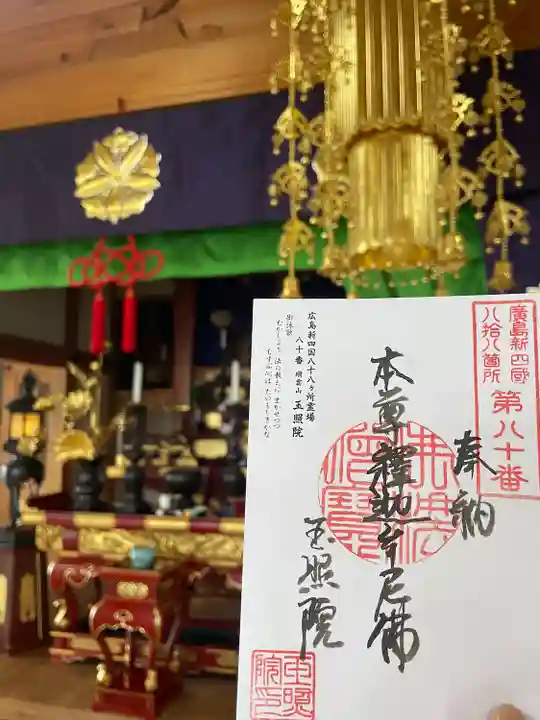 廣島新四國
八拾八箇所
第八十番
奉納
本尊釋迦牟尼佛
玉照院
佛法僧寶
玉照院印
広島新四国八十八ヶ所霊場
八十番 玉照院
御詠歌